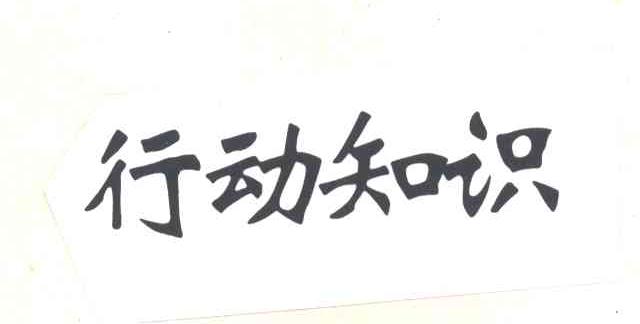 行动知识